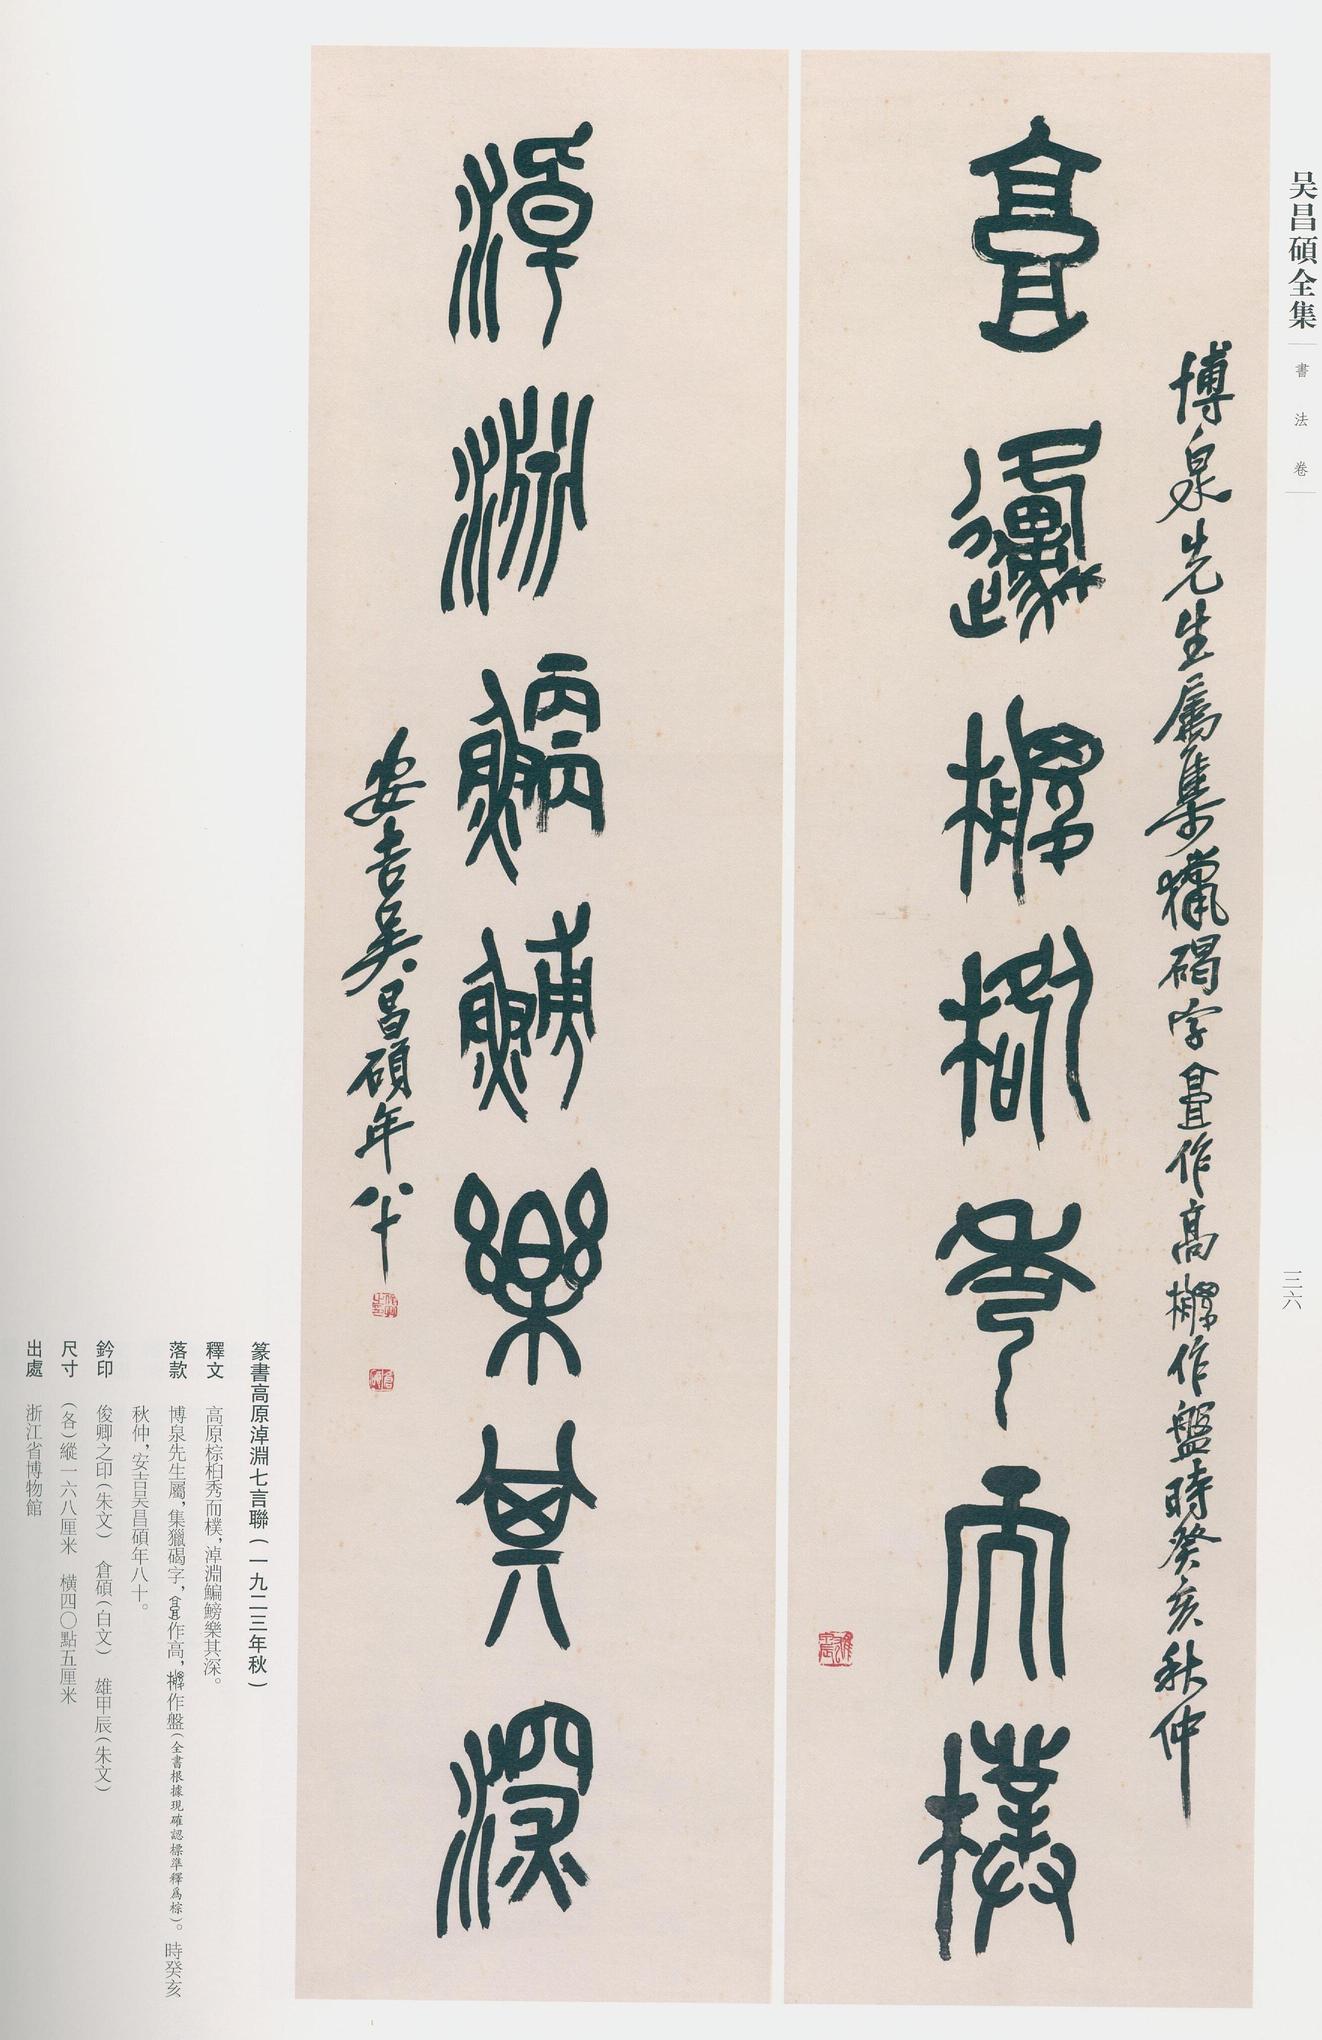 吴昌碩全集
書法卷
三六
博泉先生屬集獵碣字𩫖作高㯕作盤時癸亥秋仲
高原棕桕秀而樸
淖淵鯿鰟樂其深
安吉吴昌碩年八十
篆書高原淖淵七言聯（一九二三年秋）
釋文　高原棕桕秀而樸，淖淵鯿鰟樂其深。
落款　博泉先生屬，集獵碣字，作高，作盤（全書根據現確認標準釋爲棕）。時癸亥
秋仲，安吉吴昌碩年八十。
鈐印　俊卿之印（朱文）　倉碩（白文）　雄甲辰（朱文）
尺寸　（各）縱一六八厘米　橫四〇點五厘米
出處　浙江省博物館